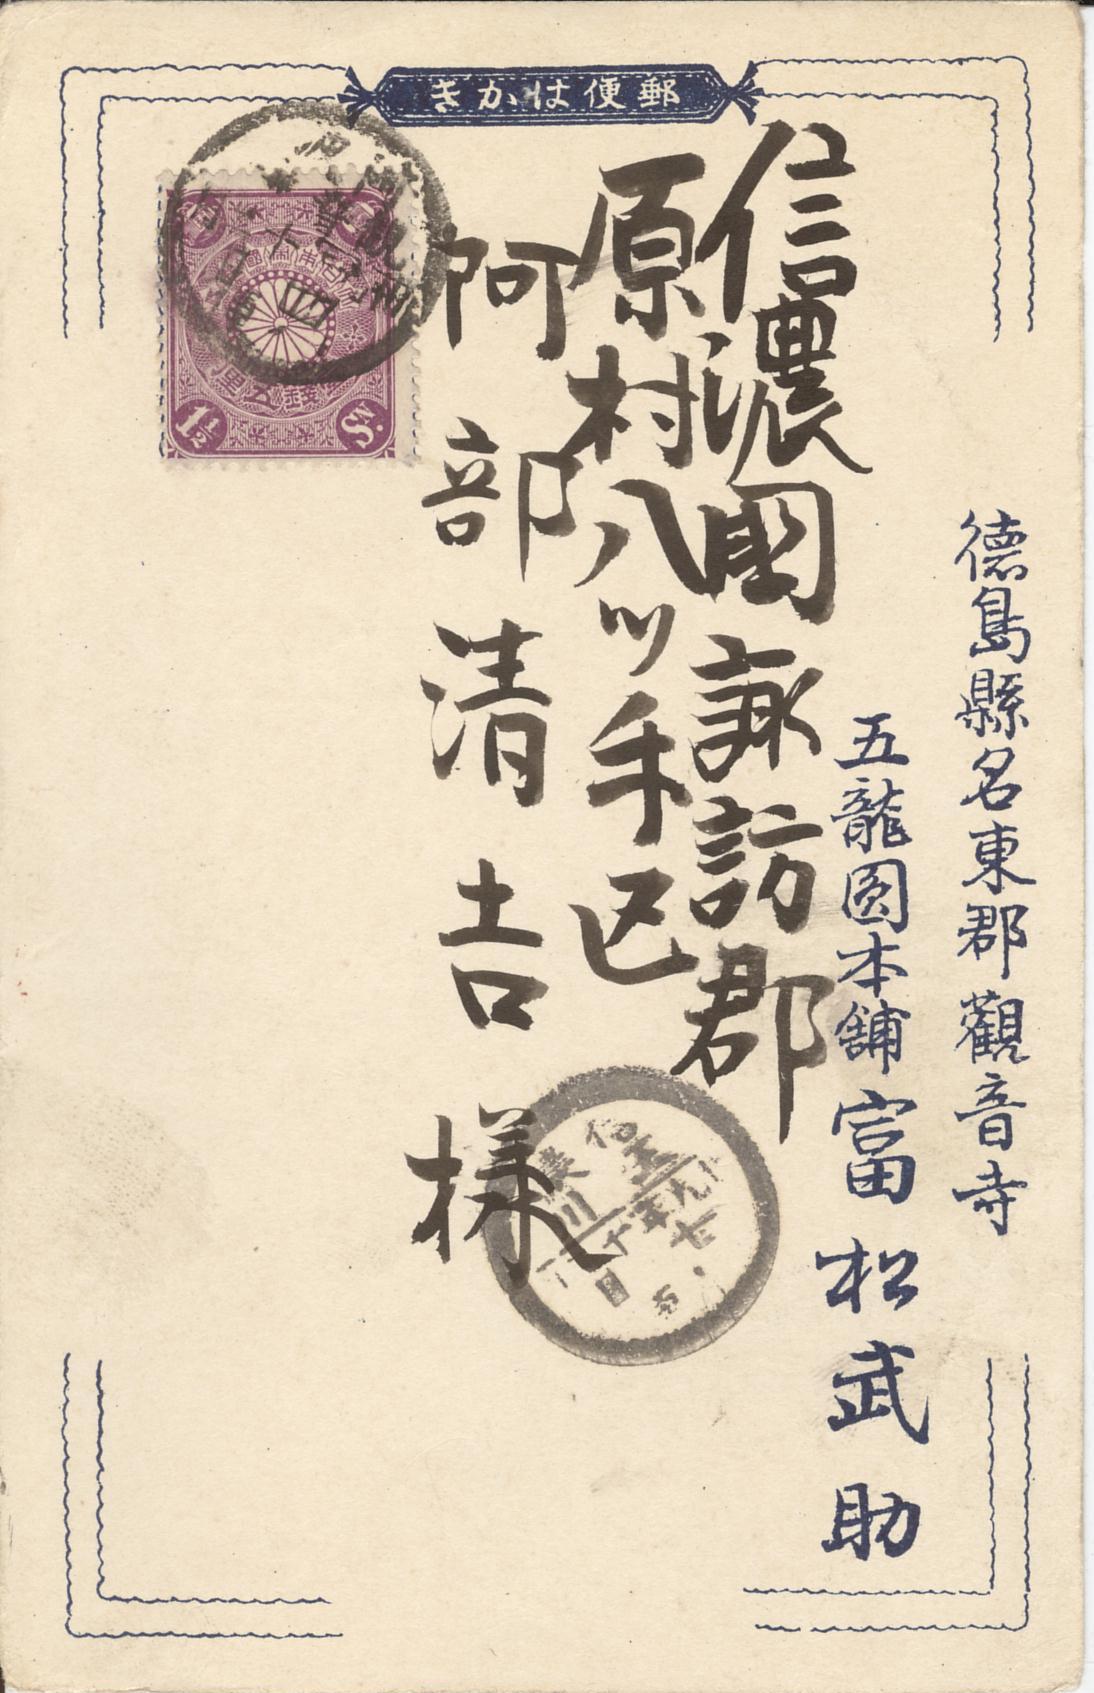 郵便はかき
德島縣名東郡觀音寺
五龍圓本舗富松武助
信濃國諏訪郡
原村八ツ手区
阿部清吉様
1½ Sn.